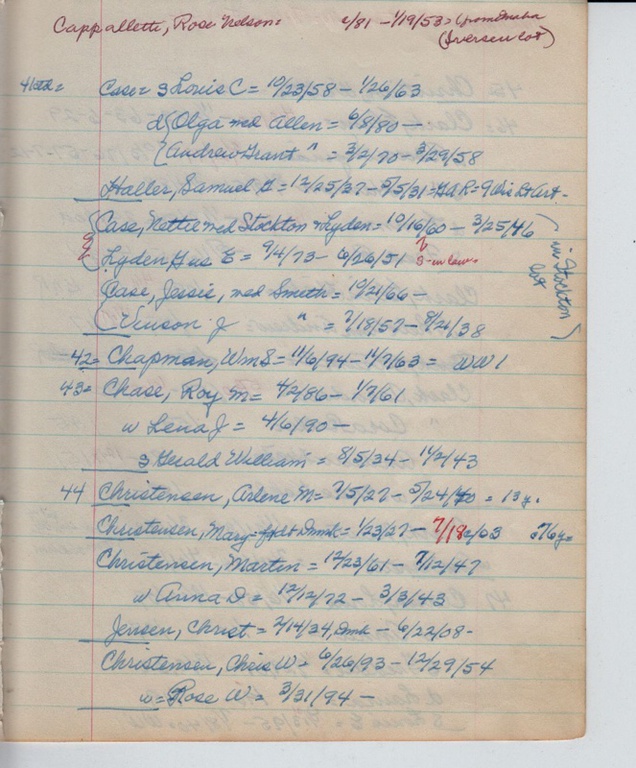 Cappalletti, Rose Nelson: 2/81 - 1/19/53 = (from Omaha
(Iversen lot)
41 ctd = Case = s Louis C = 10/23/58 - 1/26/63
d Olga med Allen = 6/8/80 -
Andrew Grant " = 3/2/70 - 3/29/58
Haller, Samuel G = 12/25/37 - 5/5/31 = GAR = 9 Wis Lt Art -
Case, Nettie med Stockton + Lyden = 10/16/60 - 3/25/46
Lyden Gus E = 9/4/73 - 6/26/51 s-in-law =
(in Stockton lot)
Case, Jessie, med Smith = 10/21/66 -
Vinson J " = 7/18/57 - 8/21/38
42 = Chapman, Wm S = 11/6/94 - 11/7/63 = WW 1
43 = Chase, Roy M = 4/2/86 - 1/7/61
w Lena J = 4/6/90 -
s Gerald William = 8/5/34 - 11/2/43
44 Christensen, Arlene M = 7/5/27 - 5/24/40 = 13 y.
Christensen, Mary = Dmk = 1/23/27 - 7/18/03 76 y =
Christensen, Martin = 12/23/61 - 7/12/47
w Anna D = 12/12/72 - 3/3/43
Jensen, Christ = 2/14/34, Dmk - 6/22/08 -
Christensen, Chris W = 6/26/93 - 12/29/54
w = Rose W = 3/31/94 -